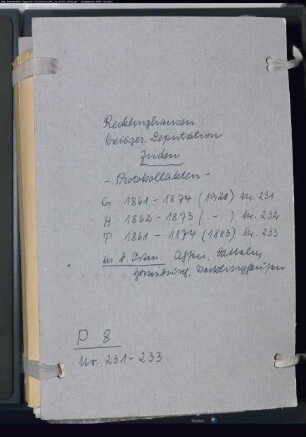 Recklinghausen
Kreisger. Deputation
Juden
- Protokollakten -
G 1861 - 1874 (1920) Nr. 231
H 1862 - 1873 ( - ) Nr. 232
T 1861 - 1874 (1883) Nr. 233
u. A. Orten: Ahsen, Datteln,
Recklinghausen
P 8
Nr. 231-233